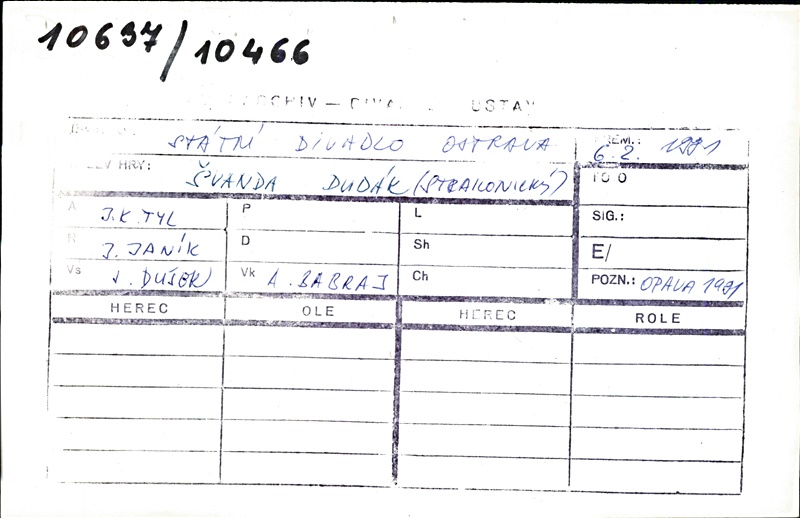 10637/10466
ARCHIV — DIVA ÚSTAV
STÁTNÍ DIVADLO OSTRAVA
EM.: 6. 2. 1991
EV HRY: ŠVANDA DUDÁK (STRAKONICKÝ)
A J.K. TYL P L SIG.:
R J. JANÍK D Sh E/
Vs J. DUŠEK Vk A. BABRAJ Ch POZN.: OPAVA 1991
HEREC OLE HEREC ROLE